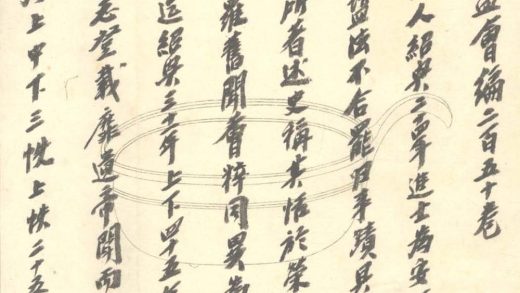 盟會編二百五十卷
人紹興二十四年進士為安
鹽法不合罷归事蹟具
所著述史稱其恬於榮
羅舊聞會粹同異為
迄紹興三十一年上下四十五年
志登載靡遺帝聞而
上中下三帙上帙二十五